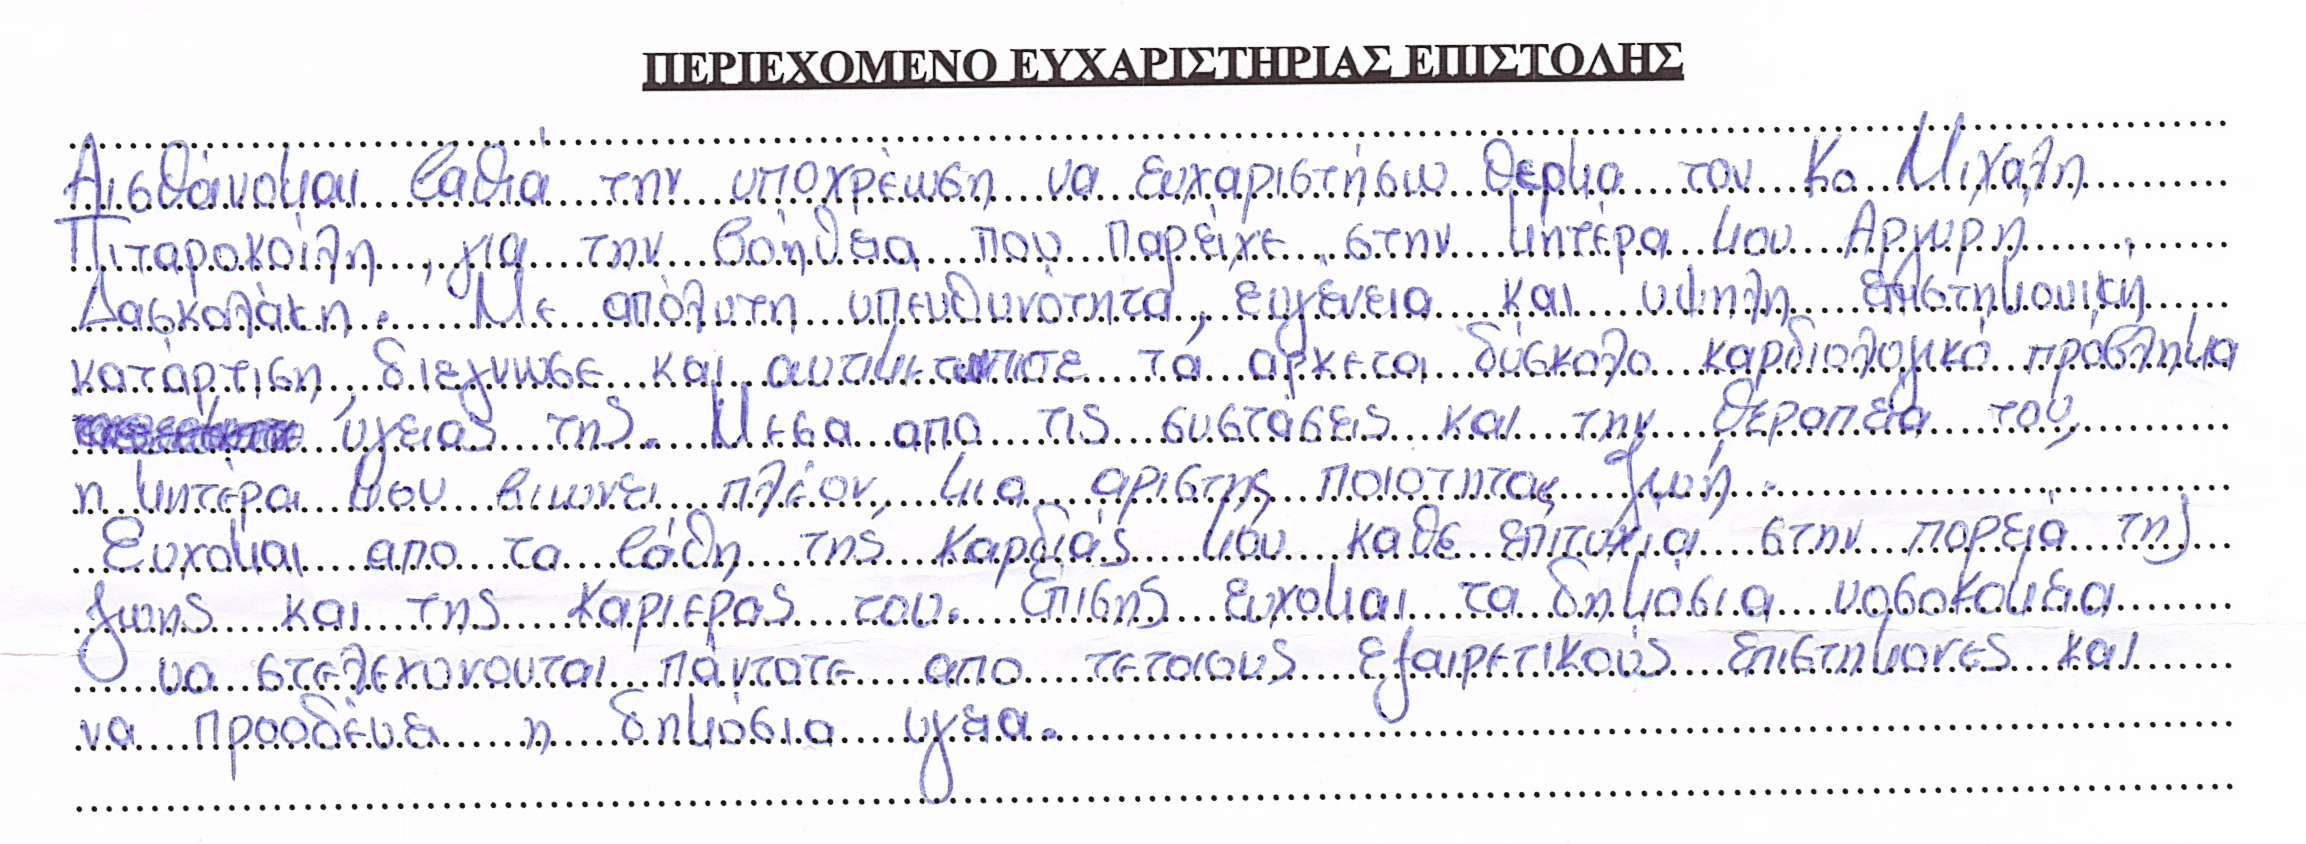 ΠΕΡΙΕΧΟΜΕΝΟ ΕΥΧΑΡΙΣΤΗΡΙΑΣ ΕΠΙΣΤΟΛΗΣ
Αισθάνομαι βαθιά την υποχρέωση να ευχαριστήσω θερμα τον Κο Μιχάλη
Πιταροκοίλη, για την βοήθεια που παρείχε στην μητέρα μου Αργυρή
Δασκαλάκη. Με απόλυτη υπευθυνότητα, ευγένεια και υψηλη επιστημονική
κατάρτιση, διεγνωσε και αντιμετωπισε τό αρκετα δύσκολο καρδιολογικό πρόβλημα
ύγειας της. Μεσα απο τις συστάσεις και την θεραπεία του,
η μητέρα μου βιωνει πλέον μια αριστης ποιότητας ζωή.
Ευχομαι απο τα βάθη της καρδιάς μου καθε επιτυχία στην πορεία της
ζωης και της καριερας του. Επισης ευχομαι τα δημόσια νοσοκομεια
να στελεχωνονται πάντοτε απο τετοιους εξαιρετικούς επιστημονες και
να προοδέυει η δημόσια υγεια.